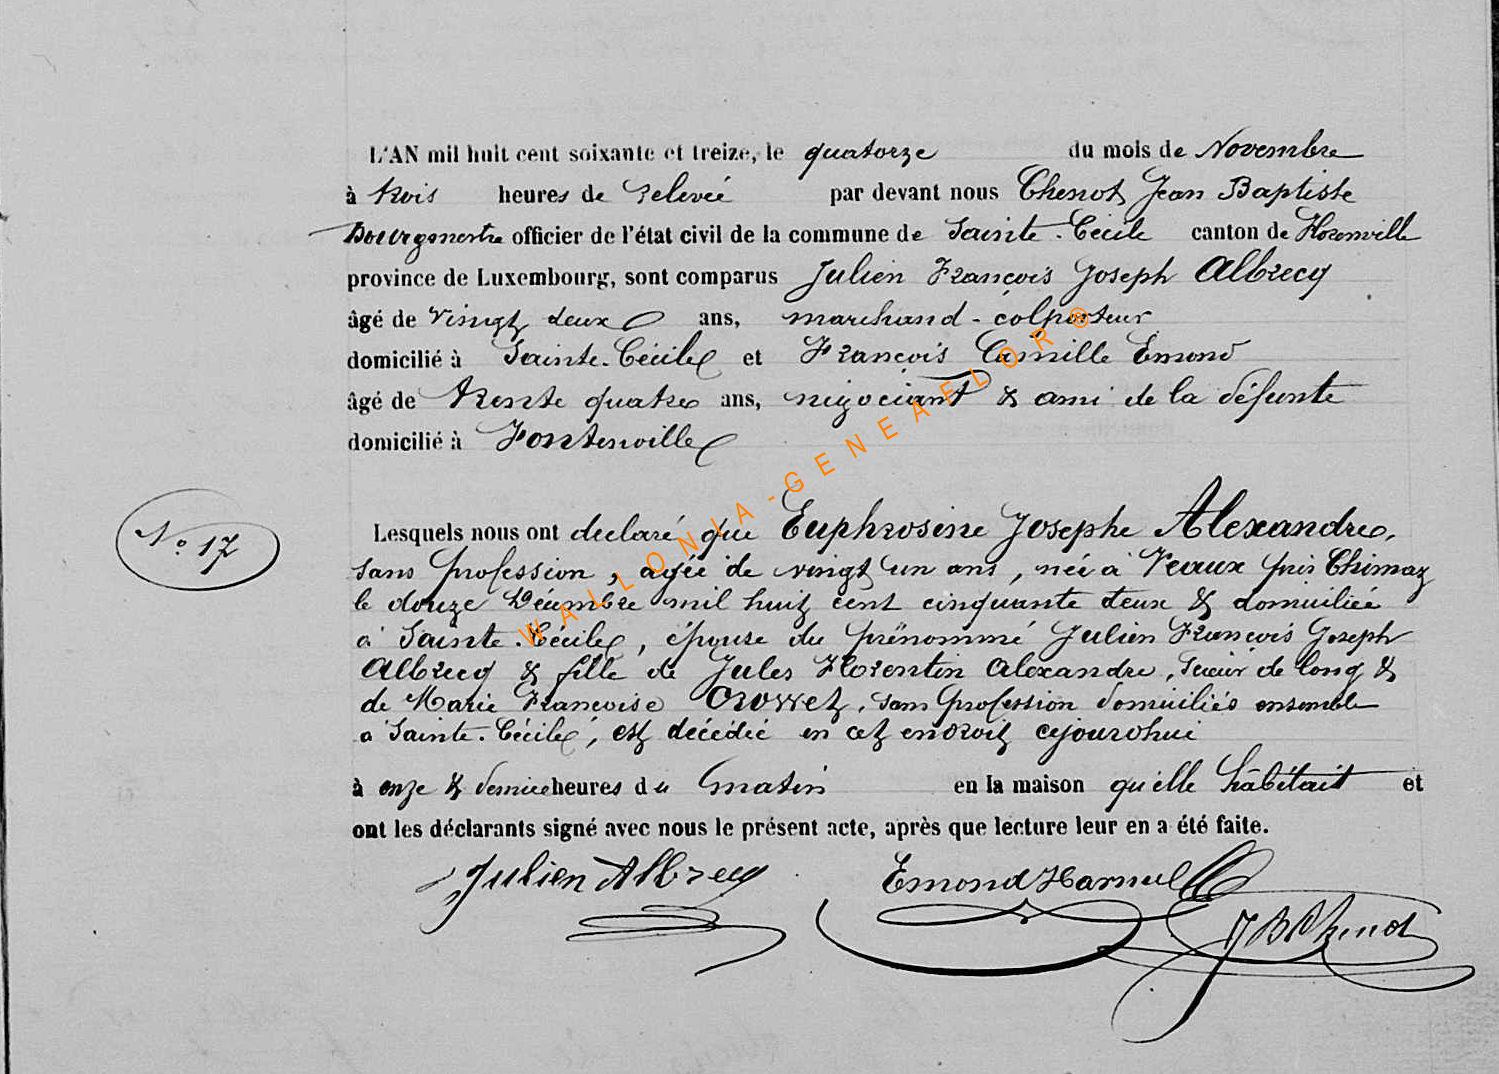 L'AN mil huit cent soixante et treize, le quatorze du mois de Novembre
à trois heures de relevée par devant nous Chenot Jean Baptiste
Bourgmestre officier de l'état civil de la commune de Sainte-Cécile canton de Florenville
province de Luxembourg, sont comparus Julien François Joseph Albrecq
âgé de vingt deux ans, marchand-colporteur
domicilié à Sainte-Cécile et François Camille Emond
âgé de trente quatre ans, négociant & ami de la défunte
domicilié à Fontenoille
N° 17
Lesquels nous ont declaré que Euphrosine Josephe Alexandre,
sans profession, agée de vingt un ans, née à Veaux près Chimay
le douze Décembre mil huit cent cinquante deux & domiciliée
à Sainte-Cécile, épouse du prénommé Julien François Joseph
Albrecq & fille de Jules Florentin Alexandre, scieur de long &
de Marie Françoise Crowet, sans profession domiciliés ensemble
a Sainte-Cécile, est décédée en cet endroit cejourdhui
à onze & demie heures du matin en la maison qu'elle habitait et
ont les déclarants signé avec nous le présent acte, après que lecture leur en a été faite.
Julien Albrecq Emond Harmel
JB Chenot
WALLONIA-GENEAELOR®